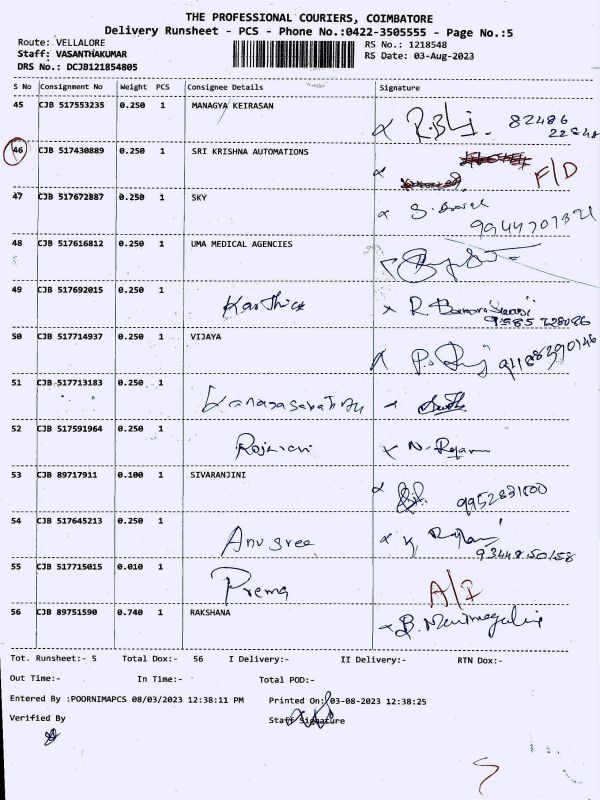 THE PROFESSIONAL COURIERS, COIMBATORE
Delivery Runsheet - PCS - Phone No.:0422-3505555 - Page No.:5
Route: VELLALORE
RS No.: 1218548
Staff: VASANTHAKUMAR
RS Date: 03-Aug-2023
DRS No.: DCJB121854805
S No Consignment No Weight PCS Consignee Details Signature
45 CJB 517553235 0.250 1 MANAGYA KEIRASAN
82486
46 CJB 517430889 0.250 1 SRI KRISHNA AUTOMATIONS
F/D
47 CJB 517672887 0.250 1 SKY
9944707321
48 CJB 517616812 0.250 1 UMA MEDICAL AGENCIES
49 CJB 517692015 0.250 1 Karthick
50 CJB 517714937 0.250 1 VIJAYA
51 CJB 517713183 0.250 1 Kanagasabathy
52 CJB 517591964 0.250 1
53 CJB 89717911 0.100 1 SIVARANJINI
9952831500
54 CJB 517645213 0.250 1 Anusree
9344850158
55 CJB 517715015 0.010 1 Prema A/I
56 CJB 89751590 0.740 1 RAKSHANA
Tot. Runsheet:- 5 Total Dox:- 56 I Delivery:- II Delivery:- RTN Dox:-
Out Time:- In Time:- Total POD:-
Entered By :POORNIMAPCS 08/03/2023 12:38:11 PM Printed On:03-08-2023 12:38:25
Verified By Staff Signature